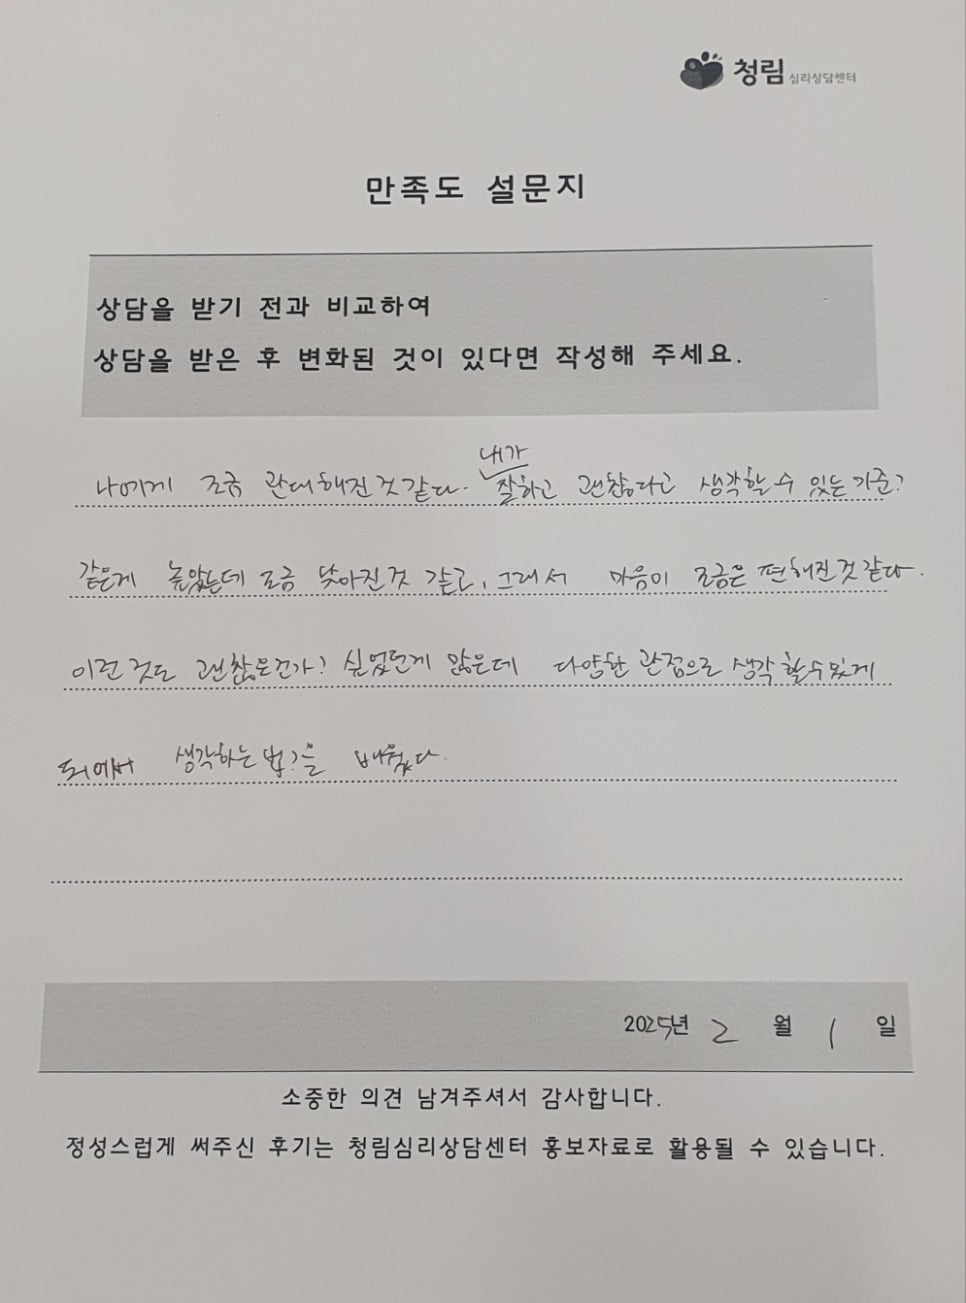 청림 심리상담센터
만족도 설문지
상담을 받기 전과 비교하여
상담을 받은 후 변화된 것이 있다면 작성해 주세요.
내가
나에게 조금 관대해진것같다. 잘하고 괜찮다고 생각할수 있는 기준?
같은게 높았는데 조금 낮아진것 같고, 그래서 마음이 조금은 편해진것같다.
이런것도 괜찮은건가? 싶었던게 많은데 다양한 관점으로 생각할수있게
되어서 생각하는법?을 배웠다.
2025년 2 월 1 일
소중한 의견 남겨주셔서 감사합니다.
정성스럽게 써주신 후기는 청림심리상담센터 홍보자료로 활용될 수 있습니다.